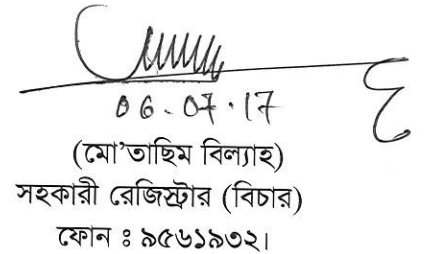 06.07.17
(মো'তাছিম বিল্যাহ)
সহকারী রেজিস্ট্রার (বিচার)
ফোন ঃ ৯৫৬১৯৩২।